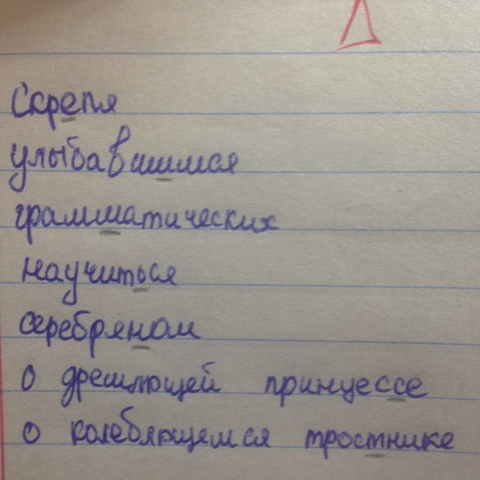 Скрепя
улыбавшимся
грамматических
научиться
серебряном
о дремлющей принцессе
о колеблющемся тростнике